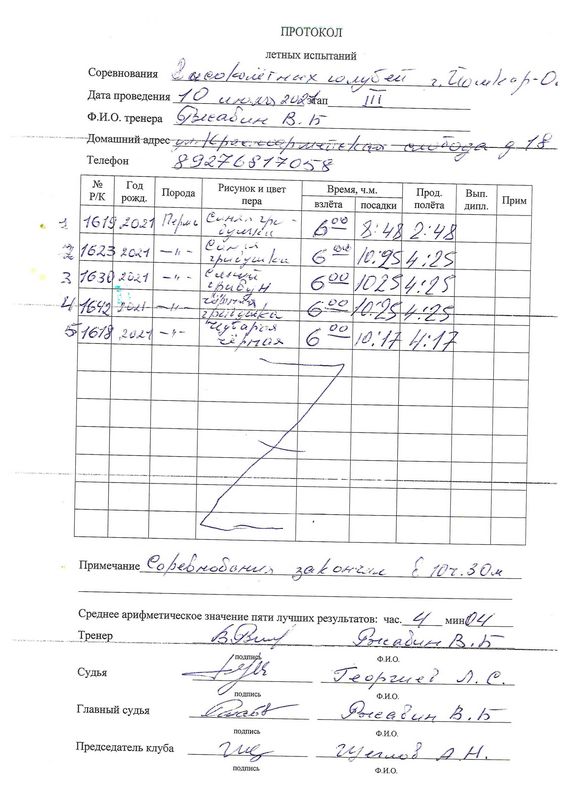 ПРОТОКОЛ
летных испытаний
Соревнования Высоколётных голубей г. Йошкар-О.
Дата проведения 10 июля 2021 этап III
Ф.И.О. тренера Рысабин В.Б
Домашний адрес ул Красноармейская слобода д 18
Телефон 89276817058
№ Р/К Год рожд. Порода Рисунок и цвет пера Время, ч.м. взлёта посадки Прод. полёта Вып. дипл. Прим
1 1619 2021 Пермь Синяя гривушка 6 00 8:48 2:48
2 1623 2021 -"- Синяя гривушка 6 00 10:25 4:25
3 1630 2021 -"- Синий гривун 6 00 1025 4:25
4 1642 2021 -"- Чёрная гривушка 6 00 10:25 4:25
5 1618 2021 -"- Чубарая чёрная 6 00 10:17 4:17
Примечание Соревнования закончил в 10ч.30м
Среднее арифметическое значение пяти лучших результатов: час. 4 мин 04
Тренер Рысабин В.Б
подпись Ф.И.О.
Судья Георгиев Л.С.
подпись Ф.И.О.
Главный судья Рысабин В.Б
подпись Ф.И.О.
Председатель клуба Щеглов А Н.
подпись Ф.И.О.